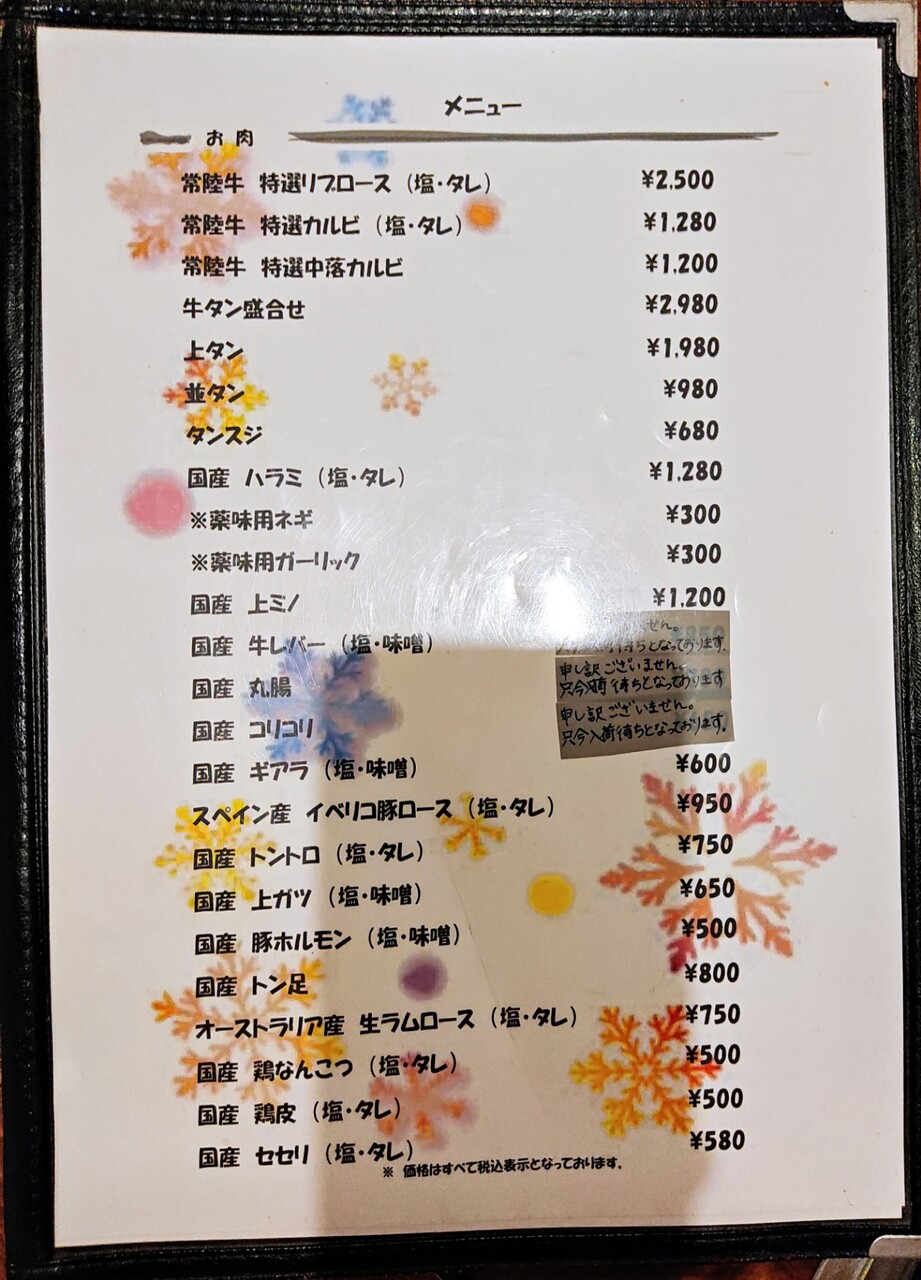 メニュー
お肉
常陸牛 特選リブロース (塩・タレ) ¥2,500
常陸牛 特選カルビ (塩・タレ) ¥1,280
常陸牛 特選中落カルビ ¥1,200
牛タン盛合せ ¥2,980
上タン ¥1,980
並タン ¥980
タンスジ ¥680
国産 ハラミ (塩・タレ) ¥1,280
※薬味用ネギ ¥300
※薬味用ガーリック ¥300
国産 上ミノ ¥1,200
国産 牛レバー (塩・味噌)
せん。
待ちとなっております。
国産 丸腸
申し訳ございません。
只今入荷待ちとなっております
国産 コリコリ
申し訳ございません。
只今入荷待ちとなっております。
国産 ギアラ (塩・味噌) ¥600
スペイン産 イベリコ豚ロース (塩・タレ) ¥950
国産 トントロ (塩・タレ) ¥750
国産 上ガツ (塩・味噌) ¥650
国産 豚ホルモン (塩・味噌) ¥500
国産 トン足 ¥800
オーストラリア産 生ラムロース (塩・タレ) ¥750
国産 鶏なんこつ (塩・タレ) ¥500
国産 鶏皮 (塩・タレ) ¥500
国産 セセリ (塩・タレ) ¥580
※ 価格はすべて税込表示となっております。